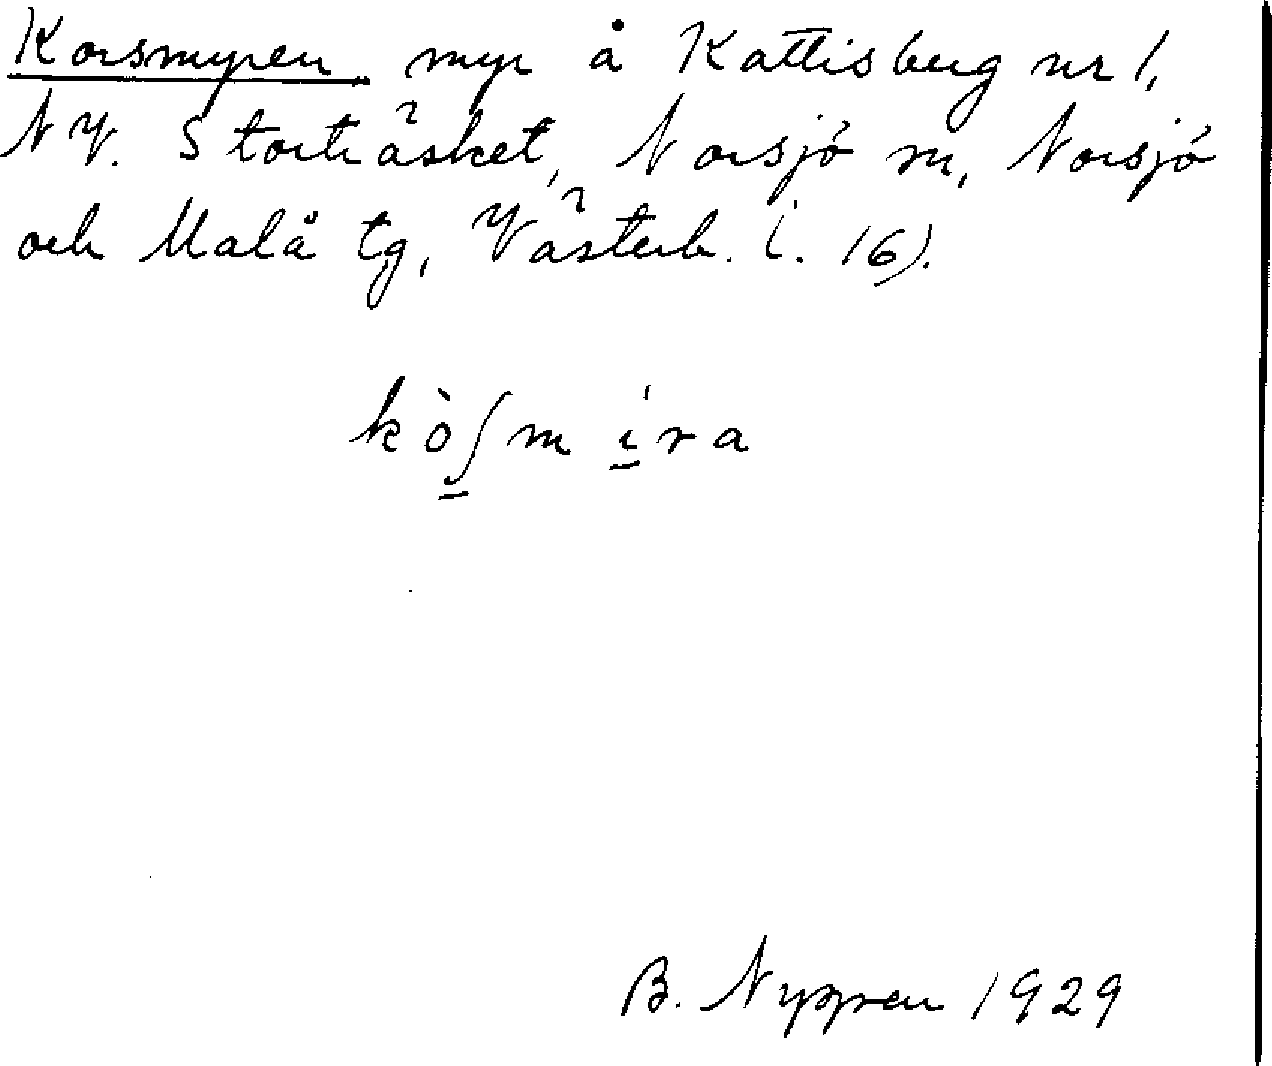 Korsmyren myr å Kattisberg nr 1,
NV. Storträsket, Norsjö sn, Norsjö
och Malå tg, Västerb. l. 16).
kòʃm íra
B. Nygren 1929